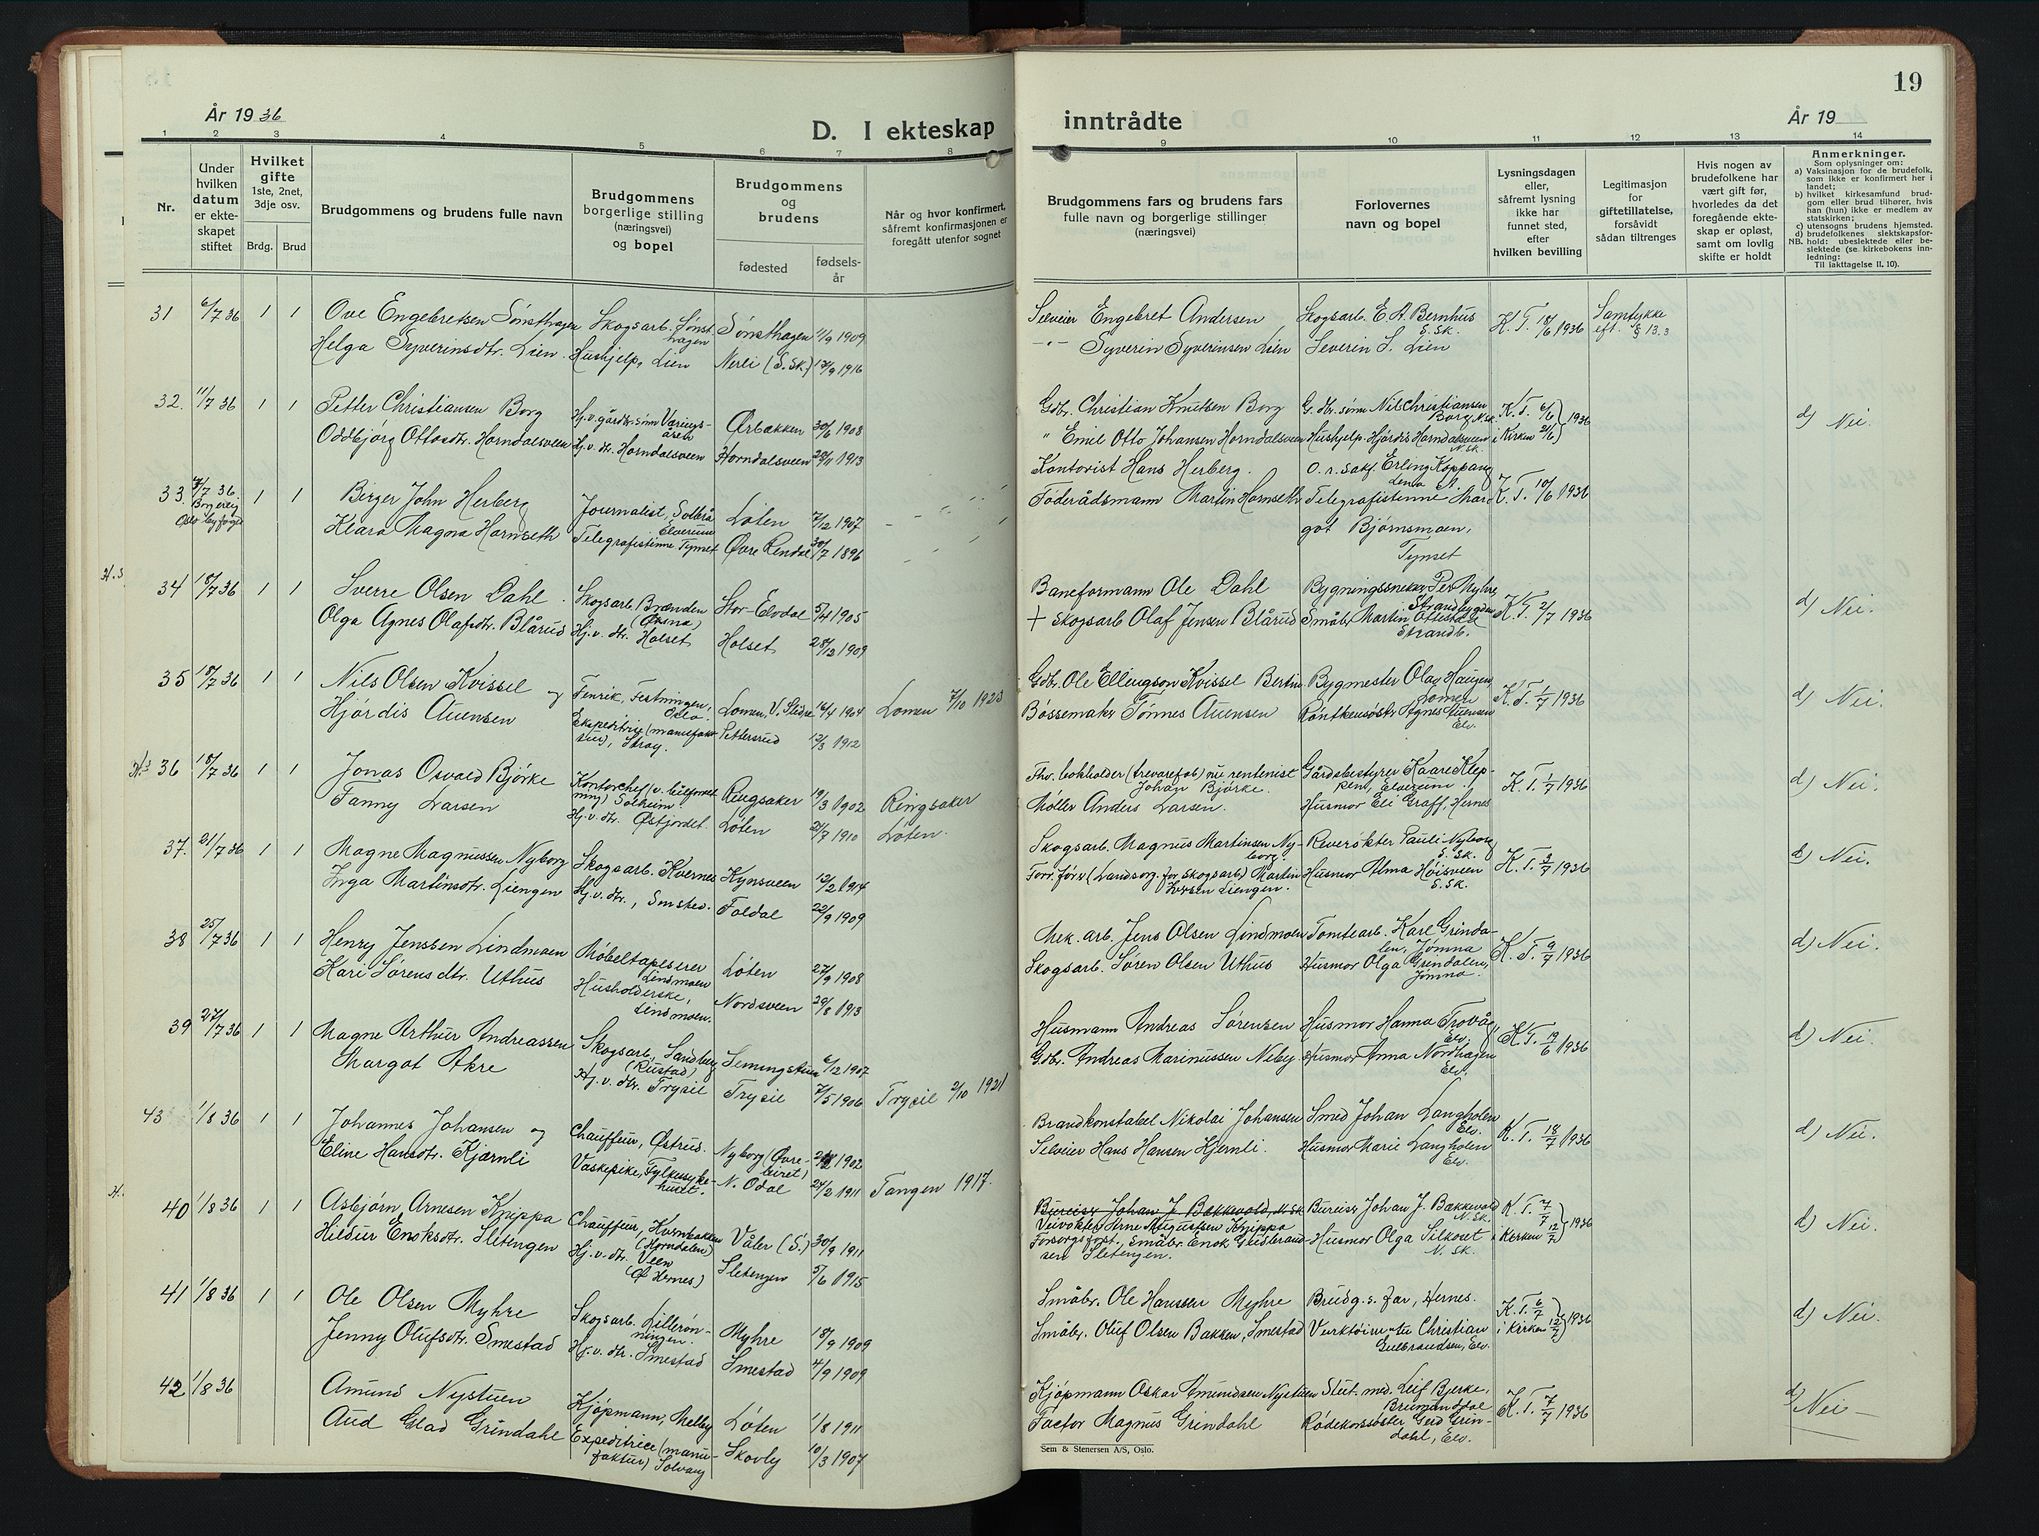 År 1936
D. I ekteskap
1 2 3 4 5 6 7 8
Nr.
Under hvilken datum er ekteskapet stiftet
Hvilket gifte 1ste, 2net, 3dje osv.
Brdg. Brud
Brudgommens og brudens fulle navn
Brudgommens borgerlige stilling (næringsvei) og bopel
Brudgommens og brudens
fødested fødselsår
Når og hvor konfirmert, såfremt konfirmasjonen er foregått utenfor sognet
31 6/7 36 1 1 Ove Engebretsen Sønsthagen Skogsarb. Sønsthagen Sønsthagen 11/9 1909
Helga Syverinsdtr. Lien. Hushjelp, Lien Nerli (S.Sk.) 17/9 1916
32. 11/7 36 1 1 Petter Christiansen Borg Hj.v. gårdbr.sønn Væringsåsen Ørbækken 30/6 1908
Oddbjørg Ottosdtr. Horndalsveen Hj.v. dtr. Horndalsveen Horndalsveen 29/11 1913
33. 7/7 36. Borgerlig Oslo byfoged 1 1 Birger John Herberg Journalist, Solbrå Elverum Løten 7/12 1907
Klara Magna Hornseth Telegrafistinne Tynset Øvre Rendal 30/7 1896
H.3.
34 18/7 36 1 1 Sverre Olsen Dahl Skogsarb. Brænden (Grina) Stor-Elvdal 5/4 1905
Olga Agnes Olafsdtr. Blårud Hj.v. dtr. Holset Holset 28/12 1909
35 18/7 36 1 1 Nils Olsen Kvissel og Fenrik, Festningen, Oslo. Lomen, V. Slidre 16/4 1904 Lomen 7/10 1923
Hjørdis Auensen Ekspeditrise (manufaktur), Stray. Pettersrud 12/3 1912
H.3 36 18/7 36 1 1 Jonas Osvald Bjørke Kontorchef (v. bilforretning) Solheim. Ringsaker 19/3 1902 Ringsaker
Fanny Larsen Hj.v. dtr. Østjordet. Løten 21/7 1910 Løten.
37. 21/7 36 1 1 Magne Magnussen Nyborg Skogsarb. Kvernes Kynsveen 12/2 1914
Inga Martinsdtr. Liengen Hj.v. dtr., Smsted. Foldal 22/9 1909
38 25/7 36 1 1 Henry Jenssen Lindmoen Møbeltapeserer Lindmoen Løten 27/9 1908
Kari Sørensdtr. Uthus Husholderske, Lindmoen. Nordsveen 29/8 1913
39 27/7 36 1 1 Magne Arthur Andreassen Skogsarb. Sandberg (Rustad) Semingstuen 6/12 1907
Margot Akre Hj.v. dtr. Trysil Trysil 7/5 1906 Trysil 2/10 1921
43 1/8 36 1 1 Johannes Johansen og Chauffeur, Østrud. Nyborg (Øvreleiret) 1902
Eline Hansdtr. Kjærnli Vaskepike, Fylkessykehuset. N. Odal 24/2 1911 Tangen 1917.
H.
40 1/8 36 1 1 Asbjørn Arnesen Knippa Chauffeur, Kvernbakken (Horndalen) Våler (S.) 30/9 1911
Hildur Enoksdtr. Sletengen Hj.v. dtr. Veen (Ø Hernes) Sletengen 5/6 1915
41 1/8 36 1 1 Ole Olsen Myhre Skogsarb. Lillerønningen. Myhre 18/9 1909
Jenny Olufsdtr. Smestad Hj.v. dtr. Smestad Smestad 4/9 1909
42 1/8 36 Amund Nystuen Kjøpmann, Melby Løten 1/8 1911
Aud Glad Grindahl Expeditrice (manufaktur) Solvang Skovly 10/3 1907
19
inntrådte
År 19
9 10 11 12 13 14
Brudgommens fars og brudens fars fulle navn og borgerlige stillinger (næringsvei)
Forlovernes navn og bopel
Lysningsdagen eller, såfremt lysning ikke har funnet sted, efter hvilken bevilling
Legitimasjon for giftetillatelse, forsåvidt sådan tiltrenges
Hvis nogen av brudefolkene har vært gift før, hvorledes da det foregående ekteskap er opløst, samt om lovlig skifte er holdt
Anmerkninger.
Som oplysninger om:
a) Vaksinasjon for de brudefolk, som ikke er konfirmert her i landet;
b) hvilket kirkesamfund brudgom eller brud tilhører, hvis han (hun) ikke er medlem av statskirken;
c) utensogns brudens hjemsted.
d) brudefolkenes slektskapsforhold: ubeslektede eller beslektede (se kirkebokens innledning:
NB. Til iakttagelse II. 10).
Selveier Engebret Andersen Skogsarb. E A. Bernhus S.Sk. K.T. 18/6 1936 Samtykke eft. § 13.3
-"- Syverin Syverinsen Lien Severin S. Lien
Gdbr. Christian Knutsen Borg G.br.sønn Nils Christiansen Borg, N.Sk. K.T. 6/6 1936 d) Nei.
" Emil Otto Johansen Horndalsveen Hushjelp Hjørdis Horndalsveen N.Sk. i Kirken 21/6
Kontorist Hans Herberg. O.r.sakf. Erling Koppang K.T. 10/6 1936
Føderådsmann Martin Hornseth Telegrafistinne Margot Bjørnsmoen, Tynset
Baneformann Ole Dahl Bygningssnekker Per Myhre, Strandbygden K.T. 2/7 1936 d) Nei.
+ Skogsarb Olaf Jensen Blårud Småbr. Martin Ottestad Strandb.
Gdbr. Ole Ellingson Kvissel Bertin Bygmester Olav Haugen, Lomen K.T. 1/7 1936 d) Nei.
Bøssemaker Tønnes Auensen Røntkensøster Agnes Auensen Elv.
Fhv. bokholder (trevarefab) nu rentenist Johan Bjørke. Gårdsbestyrer Kaare Kleppen, Elverum. K.T. 1/7 1936 d) Nei.
Møller Anders Larsen. Husmor Eli Graff, Hernes
Skogsarb. Magnus Martinsen Nyborg. Reverøkter Pauli Nyborg S.Sk. K.T. 3/7 1936 d) Nei.
Forr.fører (Landsorg. for skogsarb) Martin Liengen. Husmor Alma Høisveen S.Sk.
Mek. arb. Jens Olsen Lindmoen Tomtearb. Karl Grindalen, Jømna K.T. 9/7 1936 d) Nei.
Skogsarb. Søren Olsen Uthus Husmor Olga Grindalen, Jømna.
Husmann Andreas Sørensen Husmor Hanna Trovåg Elv. K.T. 19/6 1936 d) Nei.
Gdb. Andreas Marinussen Neby. Husmor Anna Nordhagen Elv.
Brandkonstabel Nikolai Johansen Smed Johan Langholen Elv. K.T. 18/7 1936 d) Nei.
Selveier Hans Hansen Kjernli. Husmor Marie Langholen Elv.
Bureiser Johan J. Bakkevold, N.Sk. Bureiser Johan J. Bakkevold N.Sk. K.T. 7/7 1936 d) Nei.
Veivokter Arne Augustsen Knippa
Forsorgsforst., Småbr. Enok Gudbrandsen Sletengen. Husmor Olga Silkoset N.Sk. i Kirken 12/7
Småbr. Ole Hanssen Myhre Brudg.s. far, Hernes. K.T. 6/7 1936 d) Nei.
Småbr. Oluf Olsen Bakken, Smestad Verktøim-ter Christian Gulbrandsen, Elv. i Kirken 12/7
Kjøpmann Oskar Amundsen Nystuen Stut. med. Leif Bjerke, Brumunddal K.T. 7/7 1936 d) Nei —
Factor Magnus Grindahl Rødekorssøster Gerd Grindahl, Elv.
Sem & Stenersen A/S, Oslo.